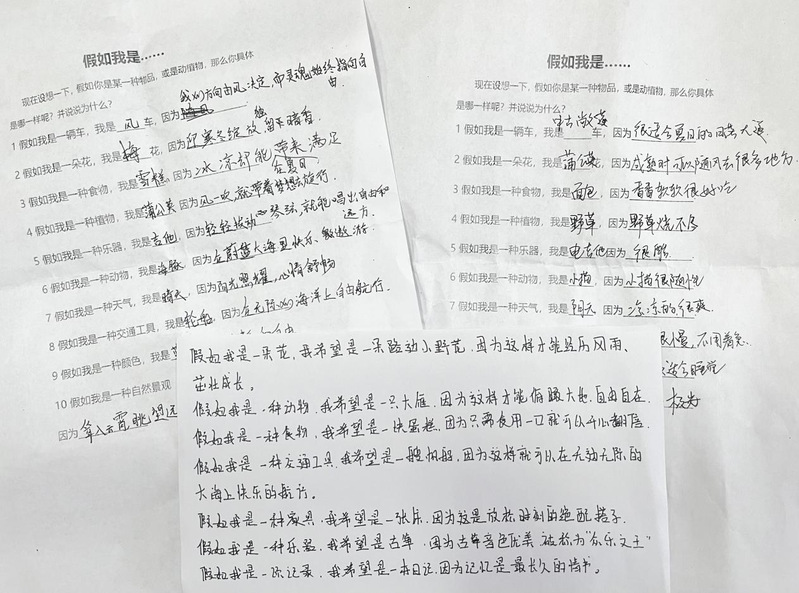 假如我是……
现在设想一下,假如你是某一种物品,或是动植物,那么你具体
是哪一样呢?并说说为什么?
我的方向由风决定,而灵魂始终指向自由
1 假如我是一辆车,我是 风 车,因为
2 假如我是一朵花,我是 梅 花,因为迎寒冬绽放 独留下暗香
3 假如我是一种食物,我是雪糕,因为冰凉却能带来满足
4 假如我是一种植物,我是蒲公英,因为风一吹就带着梦想去旅行
5 假如我是一种乐器,我是吉他,因为轻轻拨动琴弦,就能唱出自由和远方
6 假如我是一种动物,我是海豚,因为在蔚蓝大海里快乐遨游
7 假如我是一种天气,我是晴天,因为阳光照耀,心情舒畅
8 假如我是一种交通工具,我是轮船,因为在无际的海洋上自由航行
9 假如我是一种颜色,我是
10 假如我是一种自然景观
因为耸入云霄眺望远
假如我是……
现在设想一下,假如你是某一种物品,或是动植物,那么你具体
是哪一样呢?并说说为什么?
1 假如我是一辆车,我是 敞篷 车,因为很适合夏日的
2 假如我是一朵花,我是 蒲公英,因为成熟时可以随风去很多地方
3 假如我是一种食物,我是 面包,因为 香香软软很好吃
4 假如我是一种植物,我是 野草,因为 野草烧不尽
5 假如我是一种乐器,我是电吉他因为 很酷
6 假如我是一种动物,我是 小猫,因为 小猫很随性
7 假如我是一种天气,我是 阴天,因为 凉凉的很爽
很慢,不用着急
适合睡觉
极光
假如我是一朵花,我希望是一朵路边小野花,因为这样才能经历风雨、
茁壮成长。
假如我是一种动物,我希望是一只大雁,因为这样才能俯瞰大地,自由自在。
假如我是一种食物,我希望是一块蛋糕,因为只要食用一口就可以开心翻倍。
假如我是一种交通工具,我希望是一艘帆船,因为这样就可以在无边无际的
大海上快乐的航行。
假如我是一种家具,我希望是一张床,因为这是放松时刻的绝配搭子。
假如我是一种乐器,我希望是古筝,因为古筝音色优美被称为“众乐之王”
假如我是一份记录,我希望是一本日记,因为记忆是最长久的情书。